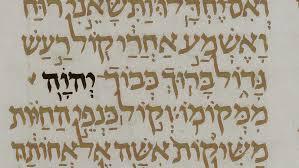 וְאִם יֶחְדָּלוּ וַתִּשָּׂאֵנִי רוּחַ
וָאֶשְׁמַע אַחֲרַי קוֹל רַעַשׁ
גָּדוֹל בָּרוּךְ כְּבוֹד יְהוָה
מִמְּקוֹמוֹ׃ וְקוֹל כַּנְפֵי הַחַיּוֹת
מַשִּׁיקוֹת אִשָּׁה אֶל אֲחוֹתָהּ